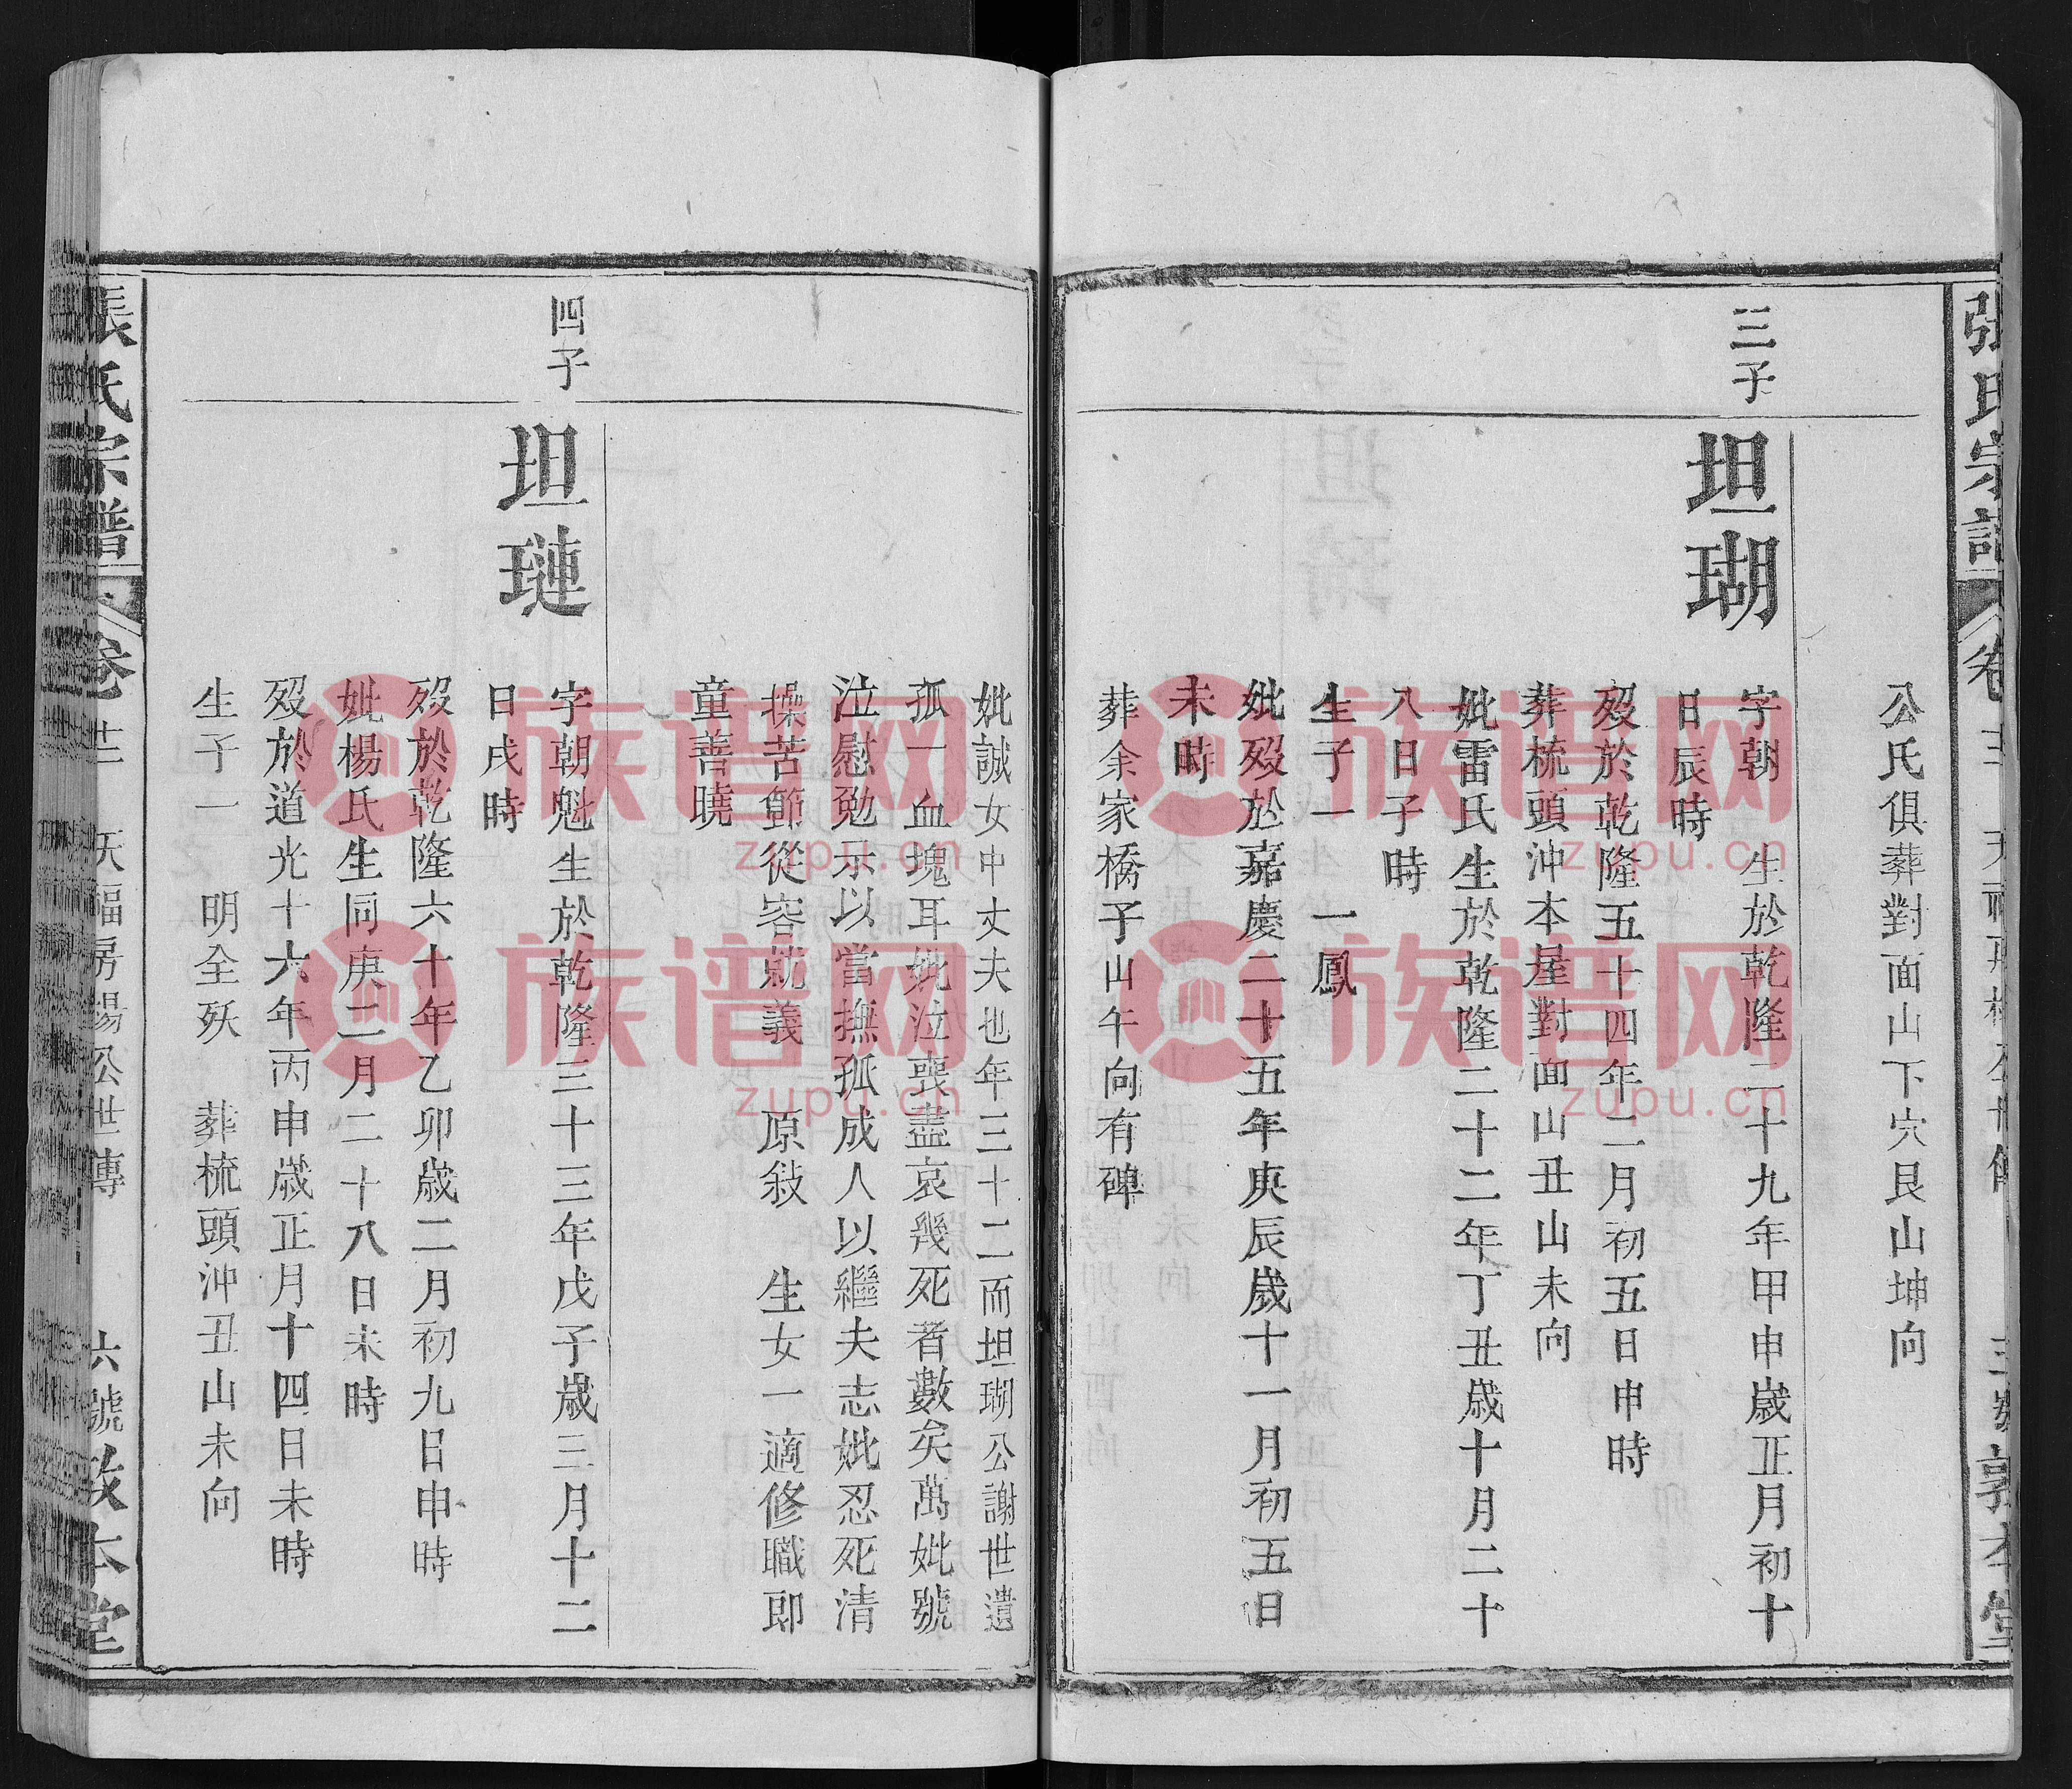 公氏俱葬對面山下穴艮山坤向
三子
坦瑚
字朝 生於乾隆二十九年甲申歲正月初十
日辰時
歿於乾隆五十四年二月初五日申時
葬梳頭沖本屋對面山丑山未向
妣雷氏生於乾隆二十二年丁丑歲十月二十
八日子時
生子一 一鳳
妣歿於嘉慶二十五年庚辰歲十一月初五日
未時
葬余家橋子山午向有碑
妣誠女中丈夫也年三十二而坦瑚公謝世遺
孤一血塊耳妣泣喪盡哀幾死者數矣萬妣號
泣慰勉示以當撫孤成人以繼夫志妣忍死清
操苦節從容就義 原敍 生女一適修職郎
童善曉
四子
坦璉
字朝魁生於乾隆三十三年戊子歲三月十二
日戌時
歿於乾隆六十年乙卯歲二月初九日申時
妣楊氏生同庚二月二十八日未時
歿於道光十六年丙申歲正月十四日未時
生子一 明全殀 葬梳頭沖丑山未向
張氏宗譜 卷 天福房楊公世傳 六號 敦本堂
族谱网
zupu.cn
族谱网
zupu.cn
族谱网
zupu.cn
族谱网
zupu.cn